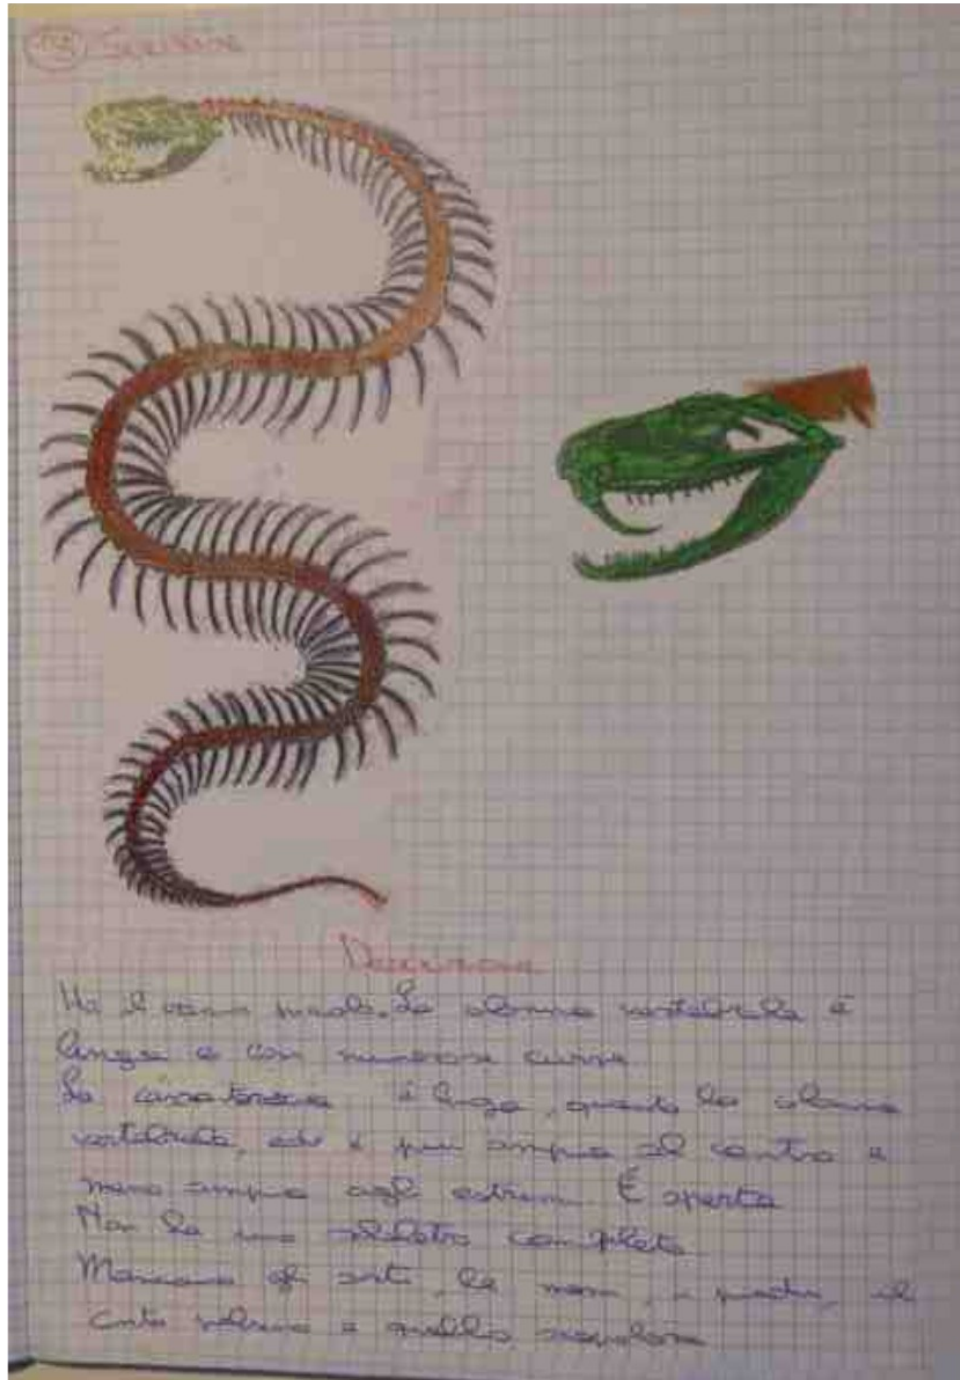 Descrizione
Ha il cranio piccolo. La colonna vertebrale è
lunga e con numerose curve
La cassa toracica è lunga, quanto la colonna
vertebrale, ed è più ampia al centro e
meno ampia agli estremi. È aperta
Non ha uno scheletro completo
Mancano gli arti, le mani, i piedi, il
cinto pelvico e quello scapolare